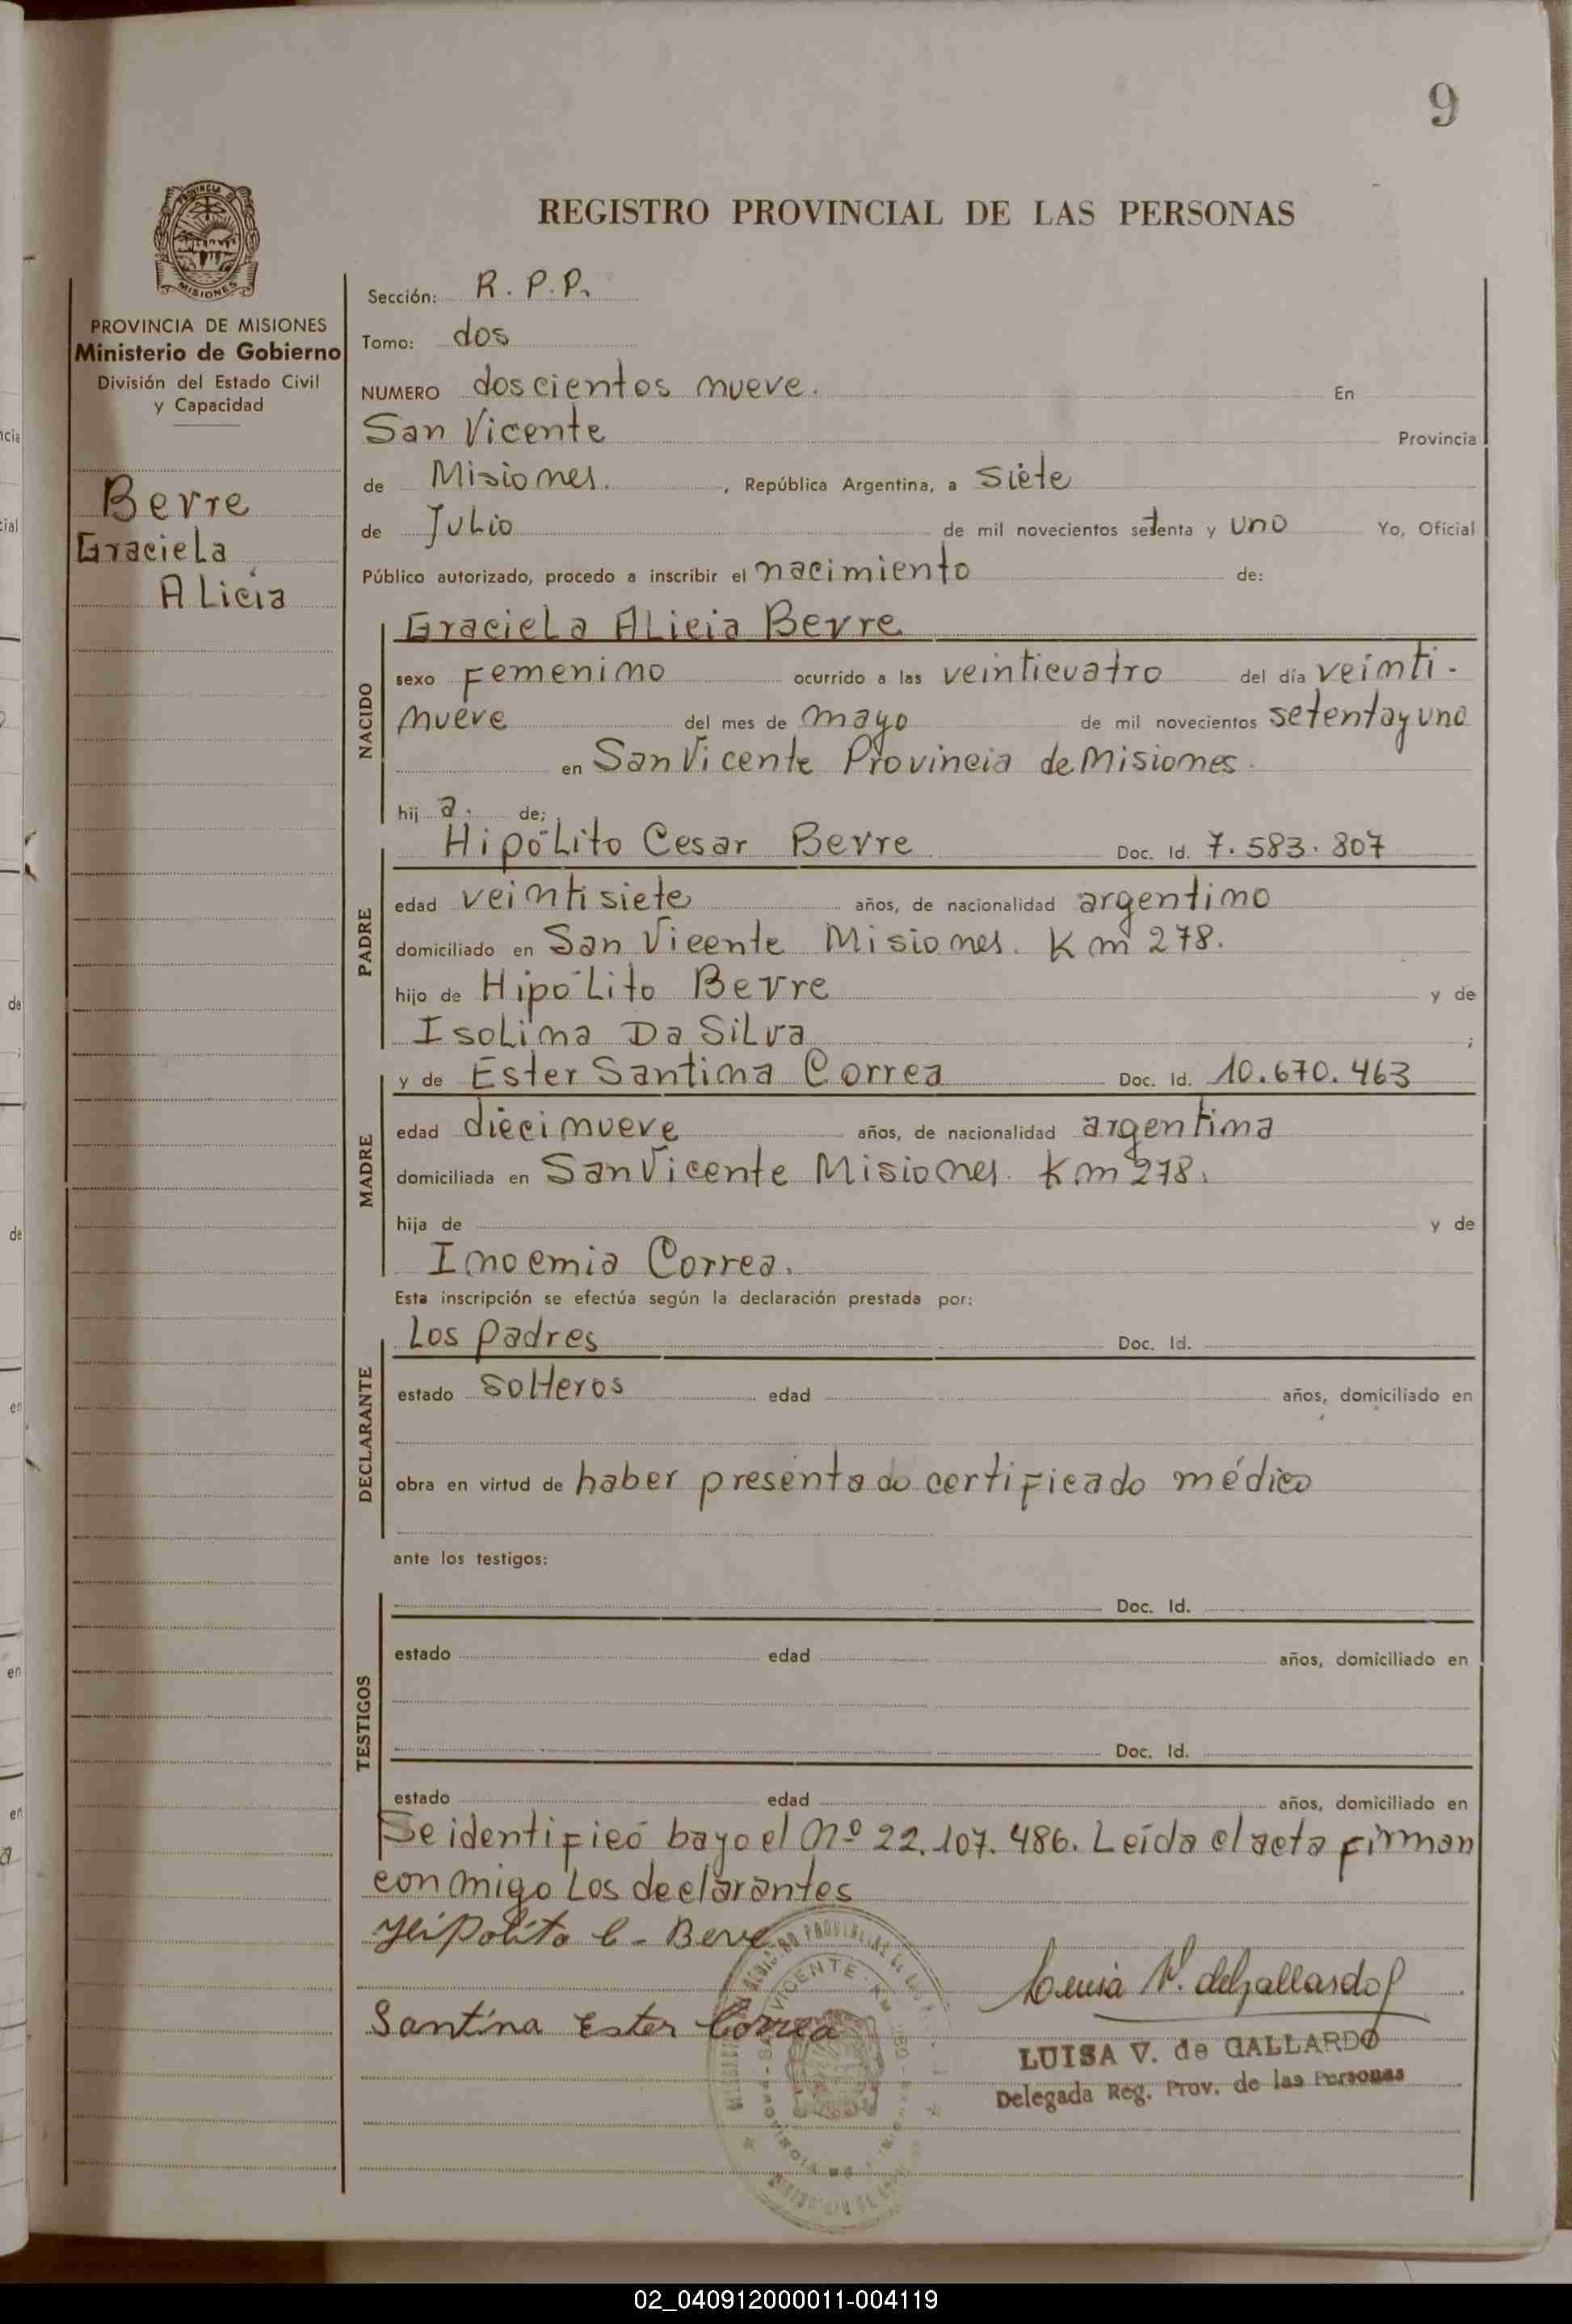 9
PROVINCIA DE
MISIONES
REGISTRO PROVINCIAL DE LAS PERSONAS
PROVINCIA DE MISIONES
Ministerio de Gobierno
División del Estado Civil
y Capacidad
Berre
Graciela
Alicia
Sección: R. P. P.
Tomo: dos
NUMERO doscientos nueve. En
San Vicente Provincia
de Misiones. , República Argentina, a siete
de Julio de mil novecientos setenta y uno Yo, Oficial
Público autorizado, procedo a inscribir el nacimiento de:
NACIDO
Graciela Alicia Berre
sexo Femenino ocurrido a las veinticuatro del día veinti-
nueve del mes de mayo de mil novecientos setenta y uno
en San Vicente Provincia de Misiones.
hij a. de;
PADRE
Hipólito Cesar Berre Doc. Id. 7.583.807
edad veintisiete años, de nacionalidad argentino
domiciliado en San Vicente Misiones. Km 278.
hijo de Hipólito Berre y de
Isolina Da Silva ;
MADRE
y de Ester Santina Correa Doc. Id. 10.670.463
edad diecinueve años, de nacionalidad argentina
domiciliada en San Vicente Misiones. Km 278.
hija de y de
Inoemia Correa.
Esta inscripción se efectúa según la declaración prestada por:
DECLARANTE
Los padres Doc. Id.
estado solteros edad años, domiciliado en
obra en virtud de haber presentado certificado médico
ante los testigos:
TESTIGOS
Doc. Id.
estado edad años, domiciliado en
Doc. Id.
estado edad años, domiciliado en
Se identificó bayo el nº 22.107.486. Leída el acta firman
conmigo los declarantes
Hipolito C - Berre
Santina Ester Correa
Luisa V. de Gallardo
LUISA V. de GALLARDO
Delegada Reg. Prov. de las Personas
02_040912000011-004119